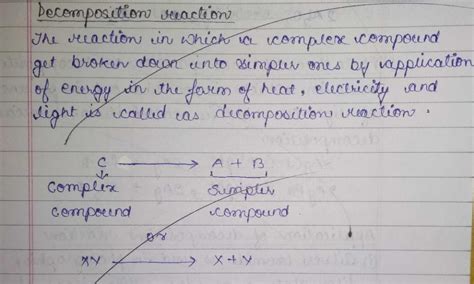 Decomposition reaction
The reaction in which a complex compound
get broken down into simpler ones by application
of energy in the form of heat, electricity and
light is called as decomposition reaction.
C → A + B
Complex simpler
compound compound.
or
XY → X + Y